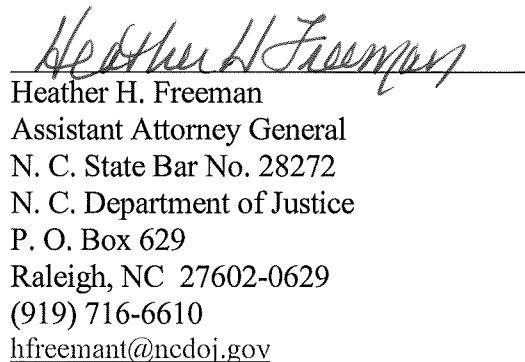 Heather H Freeman
Heather H. Freeman
Assistant Attorney General
N. C. State Bar No. 28272
N. C. Department of Justice
P. O. Box 629
Raleigh, NC 27602-0629
(919) 716-6610
hfreemant@ncdoj.gov